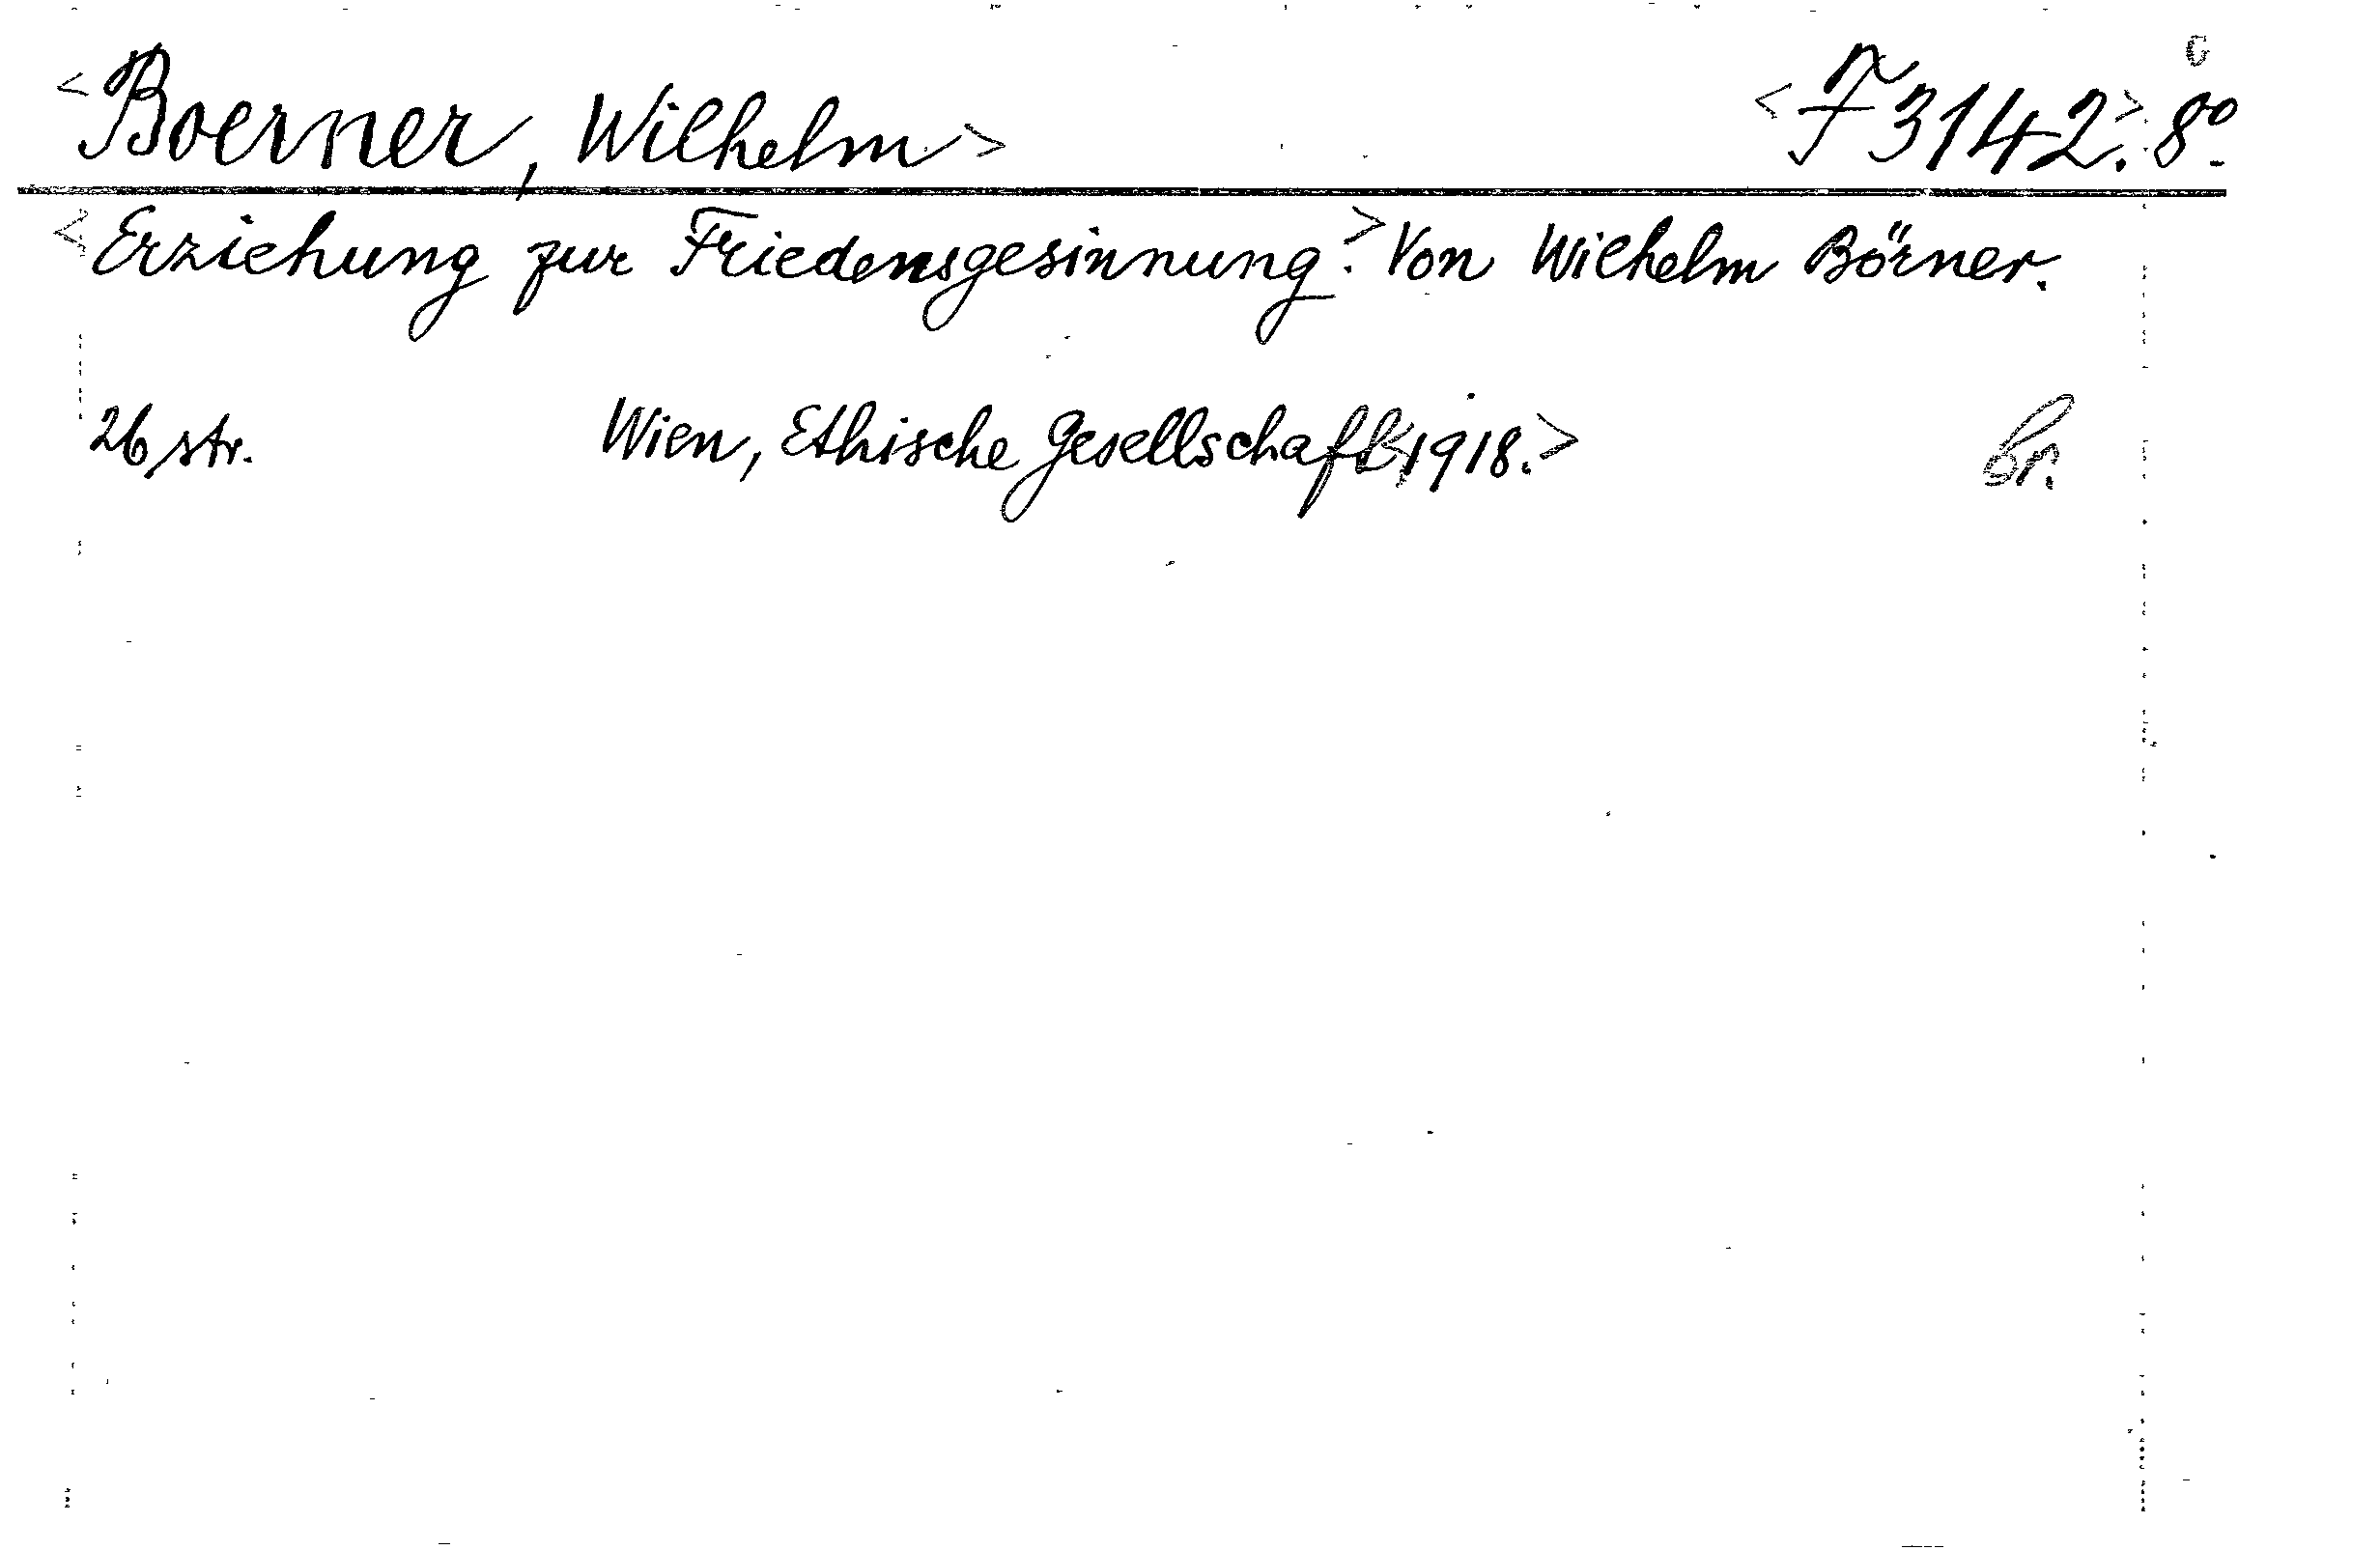 <Boerner, Wilhelm> <F 3142.> 8º.
<Erziehung zur Friedensgesinnung.> Von Wilhelm Börner.
26 str. Wien, Ethische Gesellschaft <1918.> br.